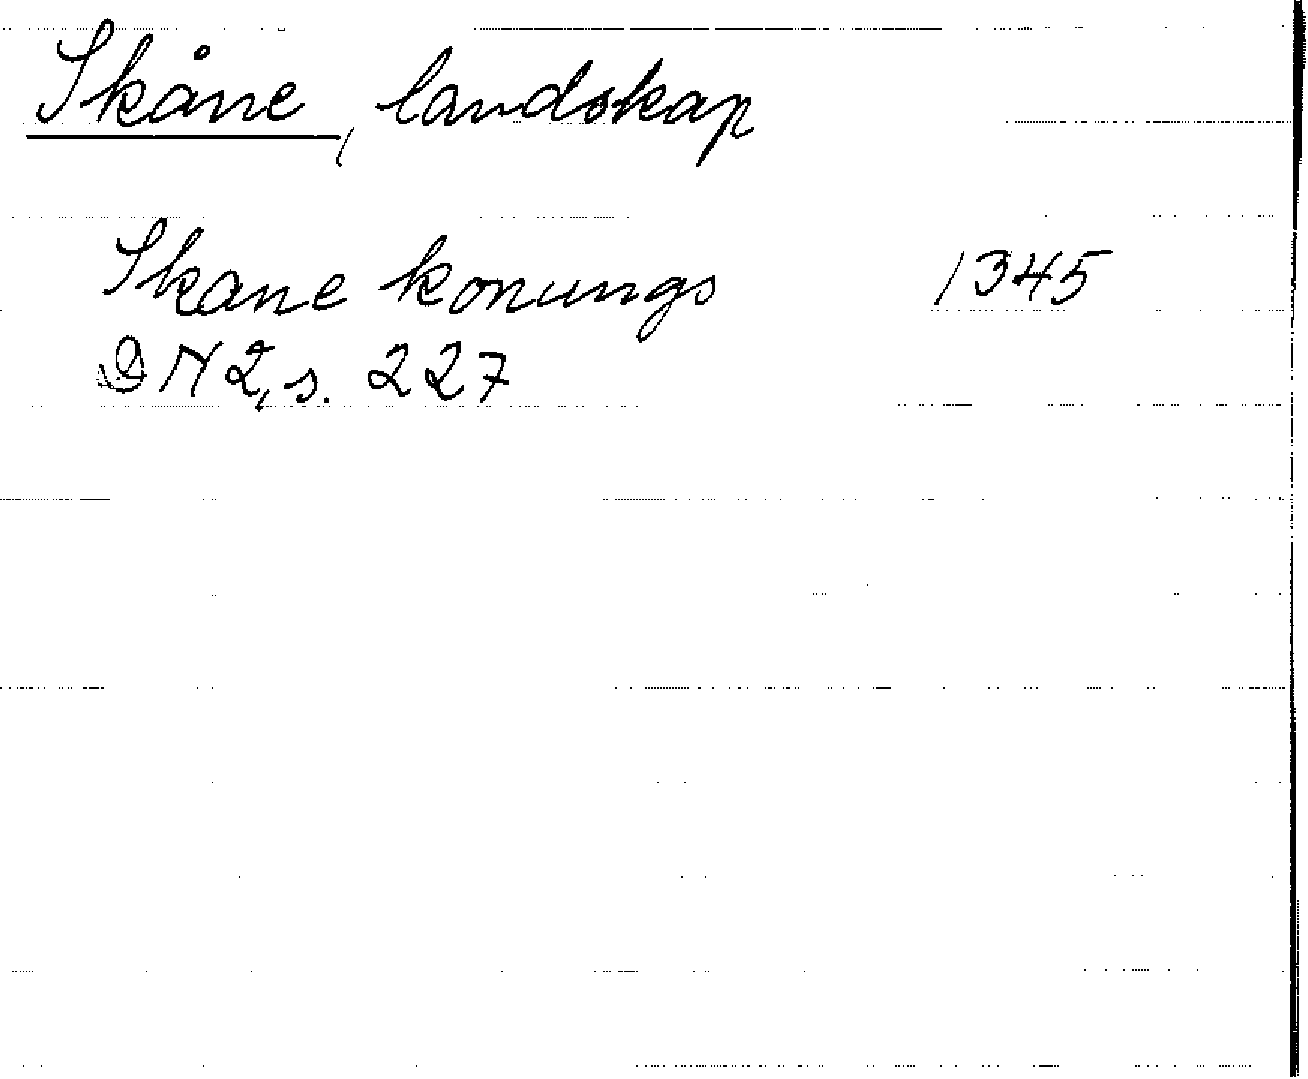 Skåne, landskap
Skane konungs 1345
DN 2, s. 227